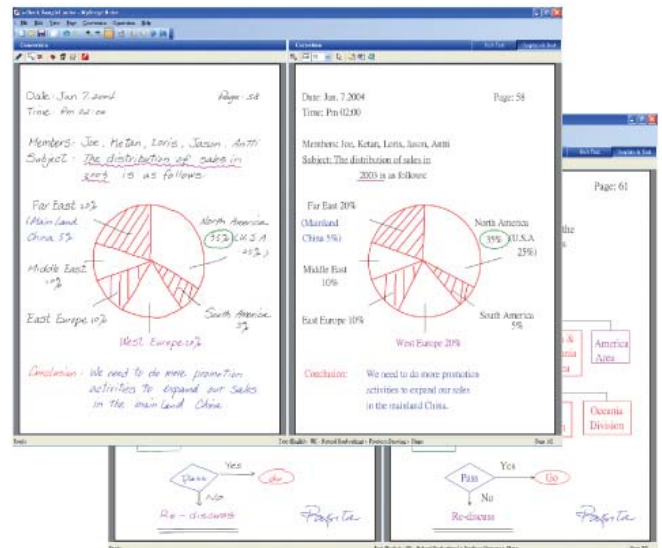 File Edit View Page
Conversion
Correction
Date: Jan 7. 2004 Page: 58
Time: Pm 02:00
Members: Joe, Ketan, Loris, Jason, Antti
Subject: The distribution of sales in
2003 is as follows:
Far East 20%
(Mainland
China 5%
North America
35% (U.S.A
25%)
Middle East
10%
South America
5%
East Europe 10%
West Europe 20%
Conclusion: We need to do more promotion
activities to expand our sales
in the mainland China
Date: Jan. 7.2004 Page: 58
Time: Pm 02:00
Members: Joe, Ketan, Loris, Jason, Antti
Subject: The distribution of sales in
2003 is as follows:
Far East 20%
(Mainland
China 5%)
North America
35% (U.S.A
25%)
Middle East
10%
South America
5%
East Europe 10%
West Europe 20%
Conclusion: We need to do more promotion
activities to expand our sales
in the mainland China.
Page: 61
the
America
Area
Oceania
Division
Pass Yes Go
No
Re-discuss
Pass Yes Go
No
Re-discuss